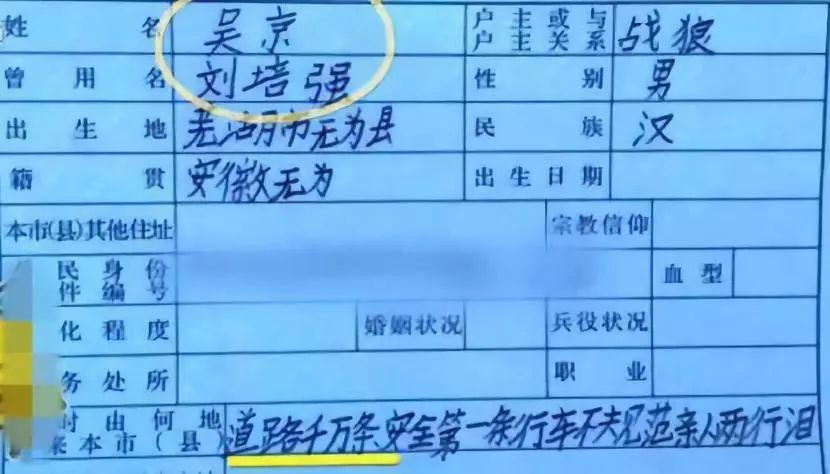 姓名 吴京 户主或与户主关系 战狼
曾用名 刘培强 性别 男
出生地 芜湖市无为县 民族 汉
籍贯 安徽无为 出生日期
本市(县)其他住址 宗教信仰
民身份件编号 血型
化程度 婚姻状况 兵役状况
务处所 职业
时由何地来本市(县) 道路千万条安全第一条行车不规范亲人两行泪